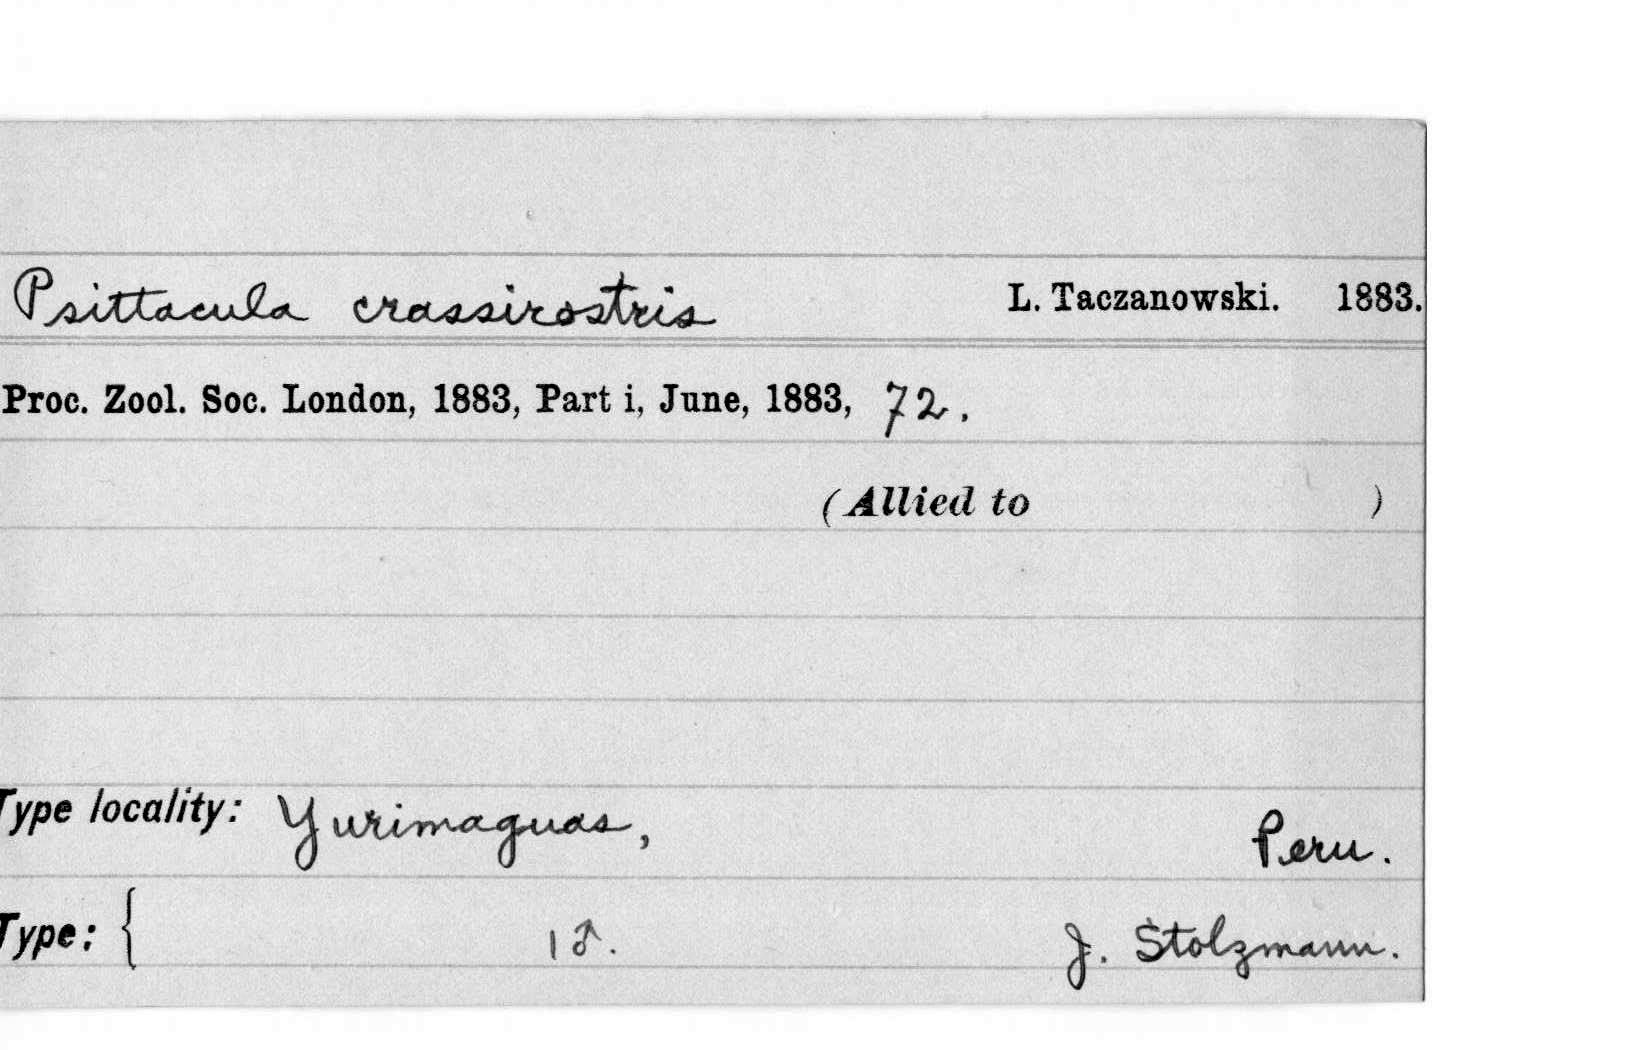 Psittacula crassirostris L. Taczanowski. 1883.
Proc. Zool. Soc. London, 1883, Part i, June, 1883, 72.
(Allied to )
Type locality: Yurimaguas, Peru.
Type: { 1♂. J. Stolzmann.